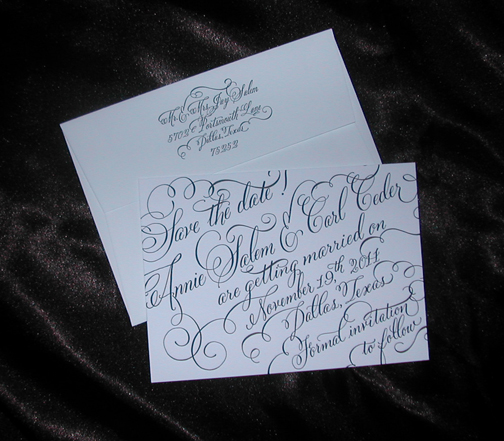 Mr. & Mrs. Jay Salem
5702 Portsmouth Lane
Dallas, Texas
75252
Save the date!
Annie Salem & Carl Ceder
are getting married on
November 19th 2011
Dallas, Texas
Formal invitation
to follow